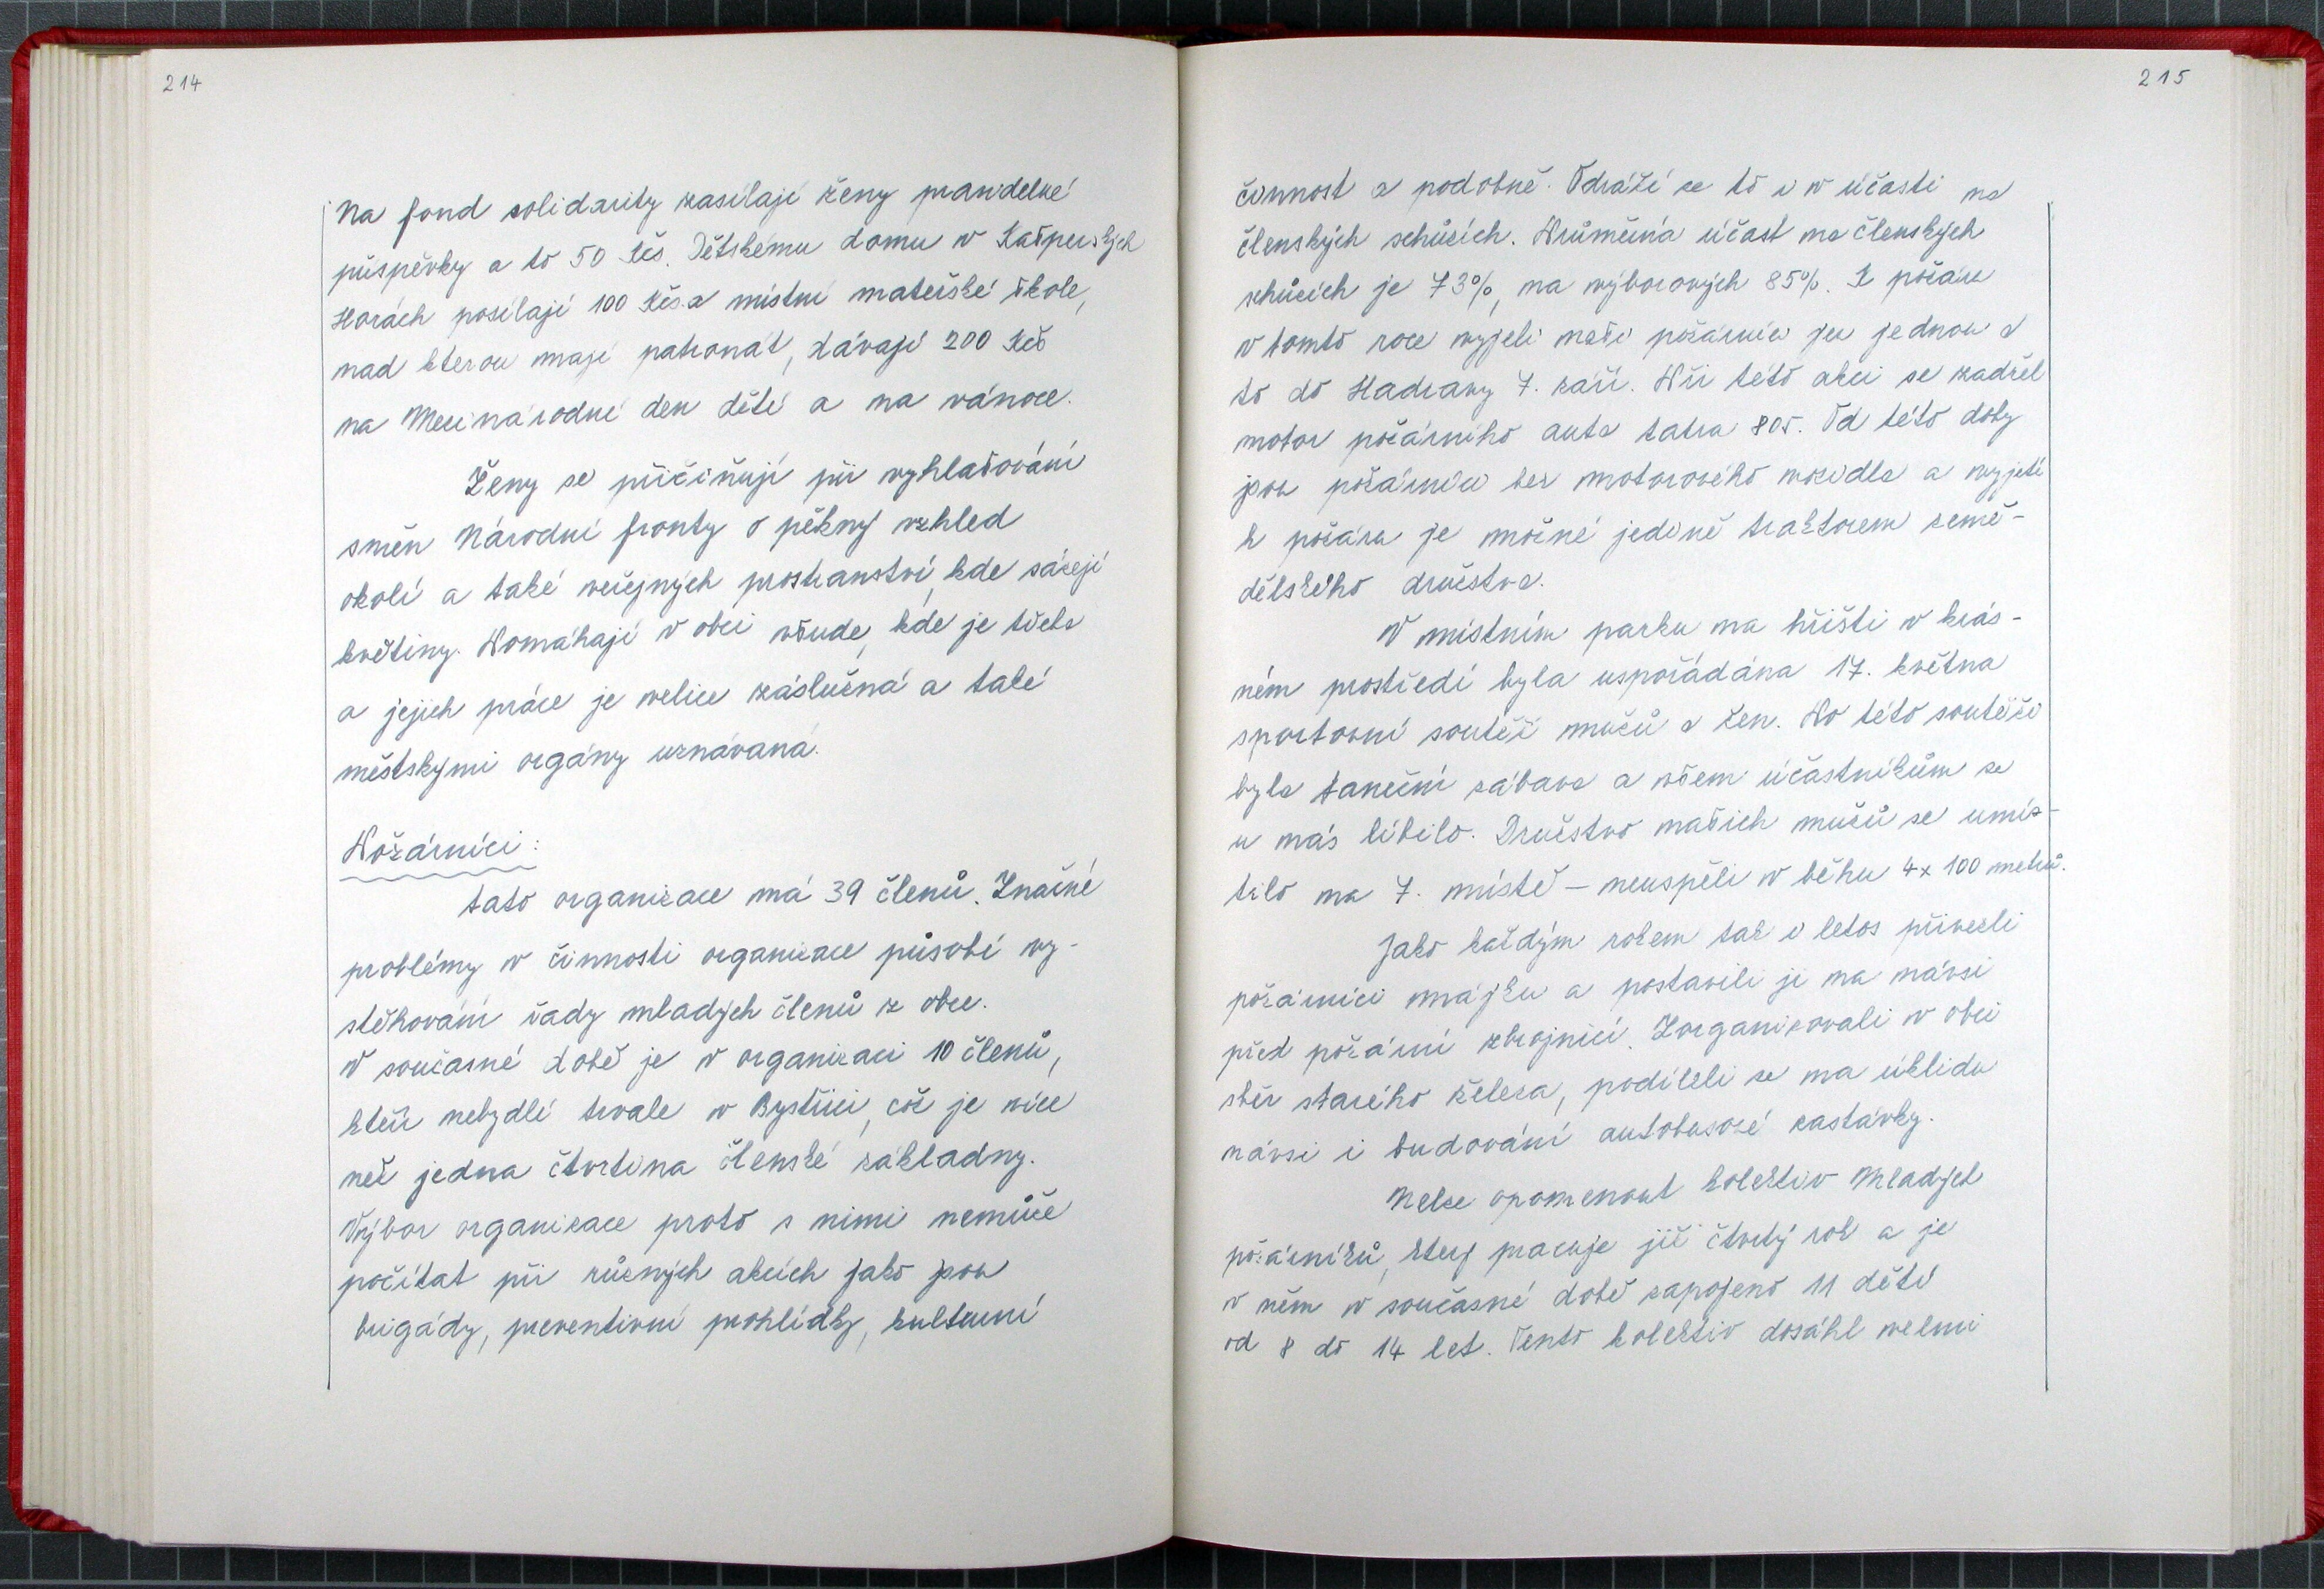 214
Na fond solidarity zasílají ženy pravidelné
příspěvky a to 50 Kčs. Dětskému domu v Kašperských
Horách posílají 100 Kčs a místní mateřské škole,
nad kterou mají patronát, dávají 200 Kčs
na Mezinárodní den dětí a na vánoce.
Ženy se přičiňují při vyhlašování
směn Národní fronty o pěkný vzhled
okolí a také veřejných prostranství, kde sázejí
květiny. Pomáhají v obci všude, kde je třeba
a jejich práce je velice záslužná a také
městskými orgány uznávaná.
Požárníci:
Tato organizace má 39 členů. Značné
problémy v činnosti organizace působí vy-
stěhování řady mladých členů z obce.
V současné době je v organizaci 10 členů,
kteří nebydlí trvale v Bystřici, což je více
než jedna čtvrtina členské základny.
Výbor organizace proto s nimi nemůže
počítat při různých akcích jako jsou
brigády, preventivní prohlídky, kulturní
215
činnost a podobně. Odráží se to i v účasti na
členských schůzích. Průměrná účast na členských
schůzích je 73%, na výborových 85%. K požáru
v tomto roce vyjeli naši požárníci jen jednou a
to do Hadravy 7. září. Při této akci se zadřel
motor požárního auta tatra 805. Od této doby
jsou požárníci bez motorového vozidla a vyjetí
k požáru je možné jedině traktorem země-
dělského družstva.
V místním parku na hřišti v krás-
ném prostředí byla uspořádána 17. května
sportovní soutěž mužů a žen. Po této soutěži
byla taneční zábava a všem účastníkům se
u nás líbilo. Družstvo našich mužů se umís-
tilo na 7. místě – neuspěli v běhu 4x 100 metrů.
Jako každým rokem tak i letos přivezli
požárníci májku a postavili ji na návsi
před požární zbrojnicí. Zorganizovali v obci
sběr starého železa, podíleli se na úklidu
návsi i budování autobusové zastávky.
Nelze opomenout kolektiv Mladých
požárníků, který pracuje již čtvrtý rok a je
v něm v současné době zapojeno 11 dětí
od 8 do 14 let. Tento kolektiv dosáhl velmi